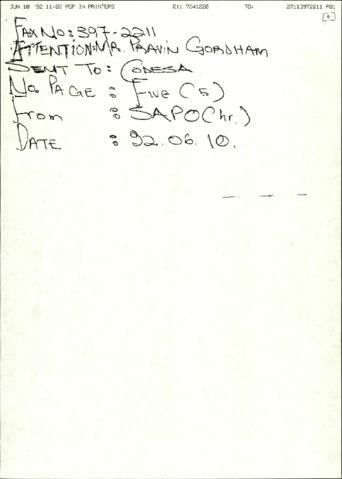 JUN 10 '92 11:02 PCP IN PRINTERS 011 7641220 TO: 27113972211 P01
[+]
FAX NO: 397-2211
ATTENTION: MR. PRAVIN GORDHAM
SENT TO: CODESA
No. PAGE : Five (5)
From : SAPO(hr.)
DATE : 92.06.10.